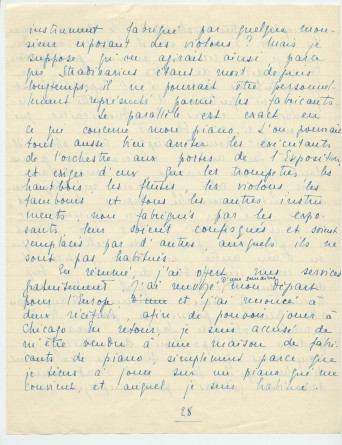 instrument fabriqué par quelque mon-
sieur exposant des violons? Mais je
suppose qu'on agirait ainsi parce
que Stradivarius étant mort depuis
longtemps, il ne pourrait être personnel-
lement représenté parmi les fabricants.
Le parallèle est exact en
ce que concerne mon piano. L'on pourrait
tout aussi bien arrêter les exécutants
de l'orchestre aux portes de l'Exposition
et exiger d'eux que les trompettes, les
hautbois, les flûtes, les violons, les
tambours et tous les autres instru-
ments, non fabriqués par les expo-
sants, leur soient confisqués et soient
remplacés par d'autres, auxquels ils ne
sont pas habitués.
En résumé, j'ai offert mes services
gratuitement, j'ai remis d'une semaine mon départ
pour l'Europe et j'ai renoncé à
deux récitals, afin de pouvoir jouer à
Chicago. En retour je suis accusé de
m'être vendu à une maison de fabri-
cants de piano, simplement parce que
je tiens à jouer sur un piano qui me
convient et auquel je suis habitué.
28